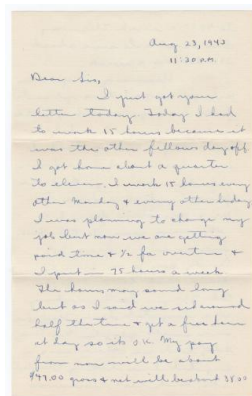 Aug 23, 1942
11:20 P.M.
Dear Sis,
I just got your
letter today. Today I had
to work 15 hours because it
was the other fellows day off
I got home about a quarter
to eleven. I work 15 hours every
other Monday & every other
I was planning to change my
job but now we are getting
paid time & ½ for overtime &
I put in 75 hours a week.
The hours may sound long
but as I said we sit around
half the time & get a free
at day so its O.K. My pay
from now will be about
$47.00 gross & net will be about 38.00